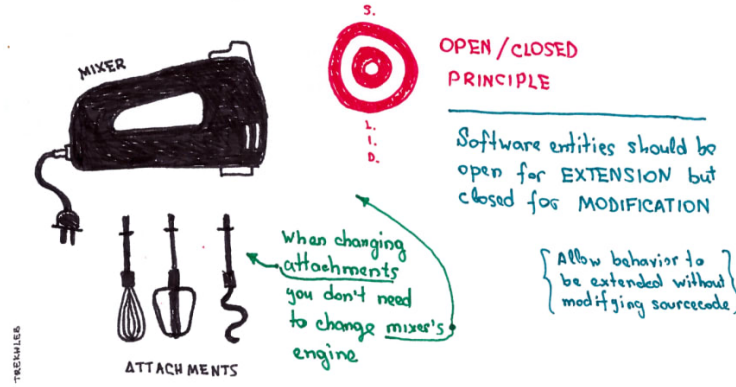 MIXER
S.
L.
I.
D.
OPEN/CLOSED
PRINCIPLE
Software entities should be
open for EXTENSION but
closed for MODIFICATION
{ Allow behavior to
be extended without
modifying sourcecode }
When changing
attachments
you don't need
to change mixer's
engine
ATTACHMENTS
TREKHLEB